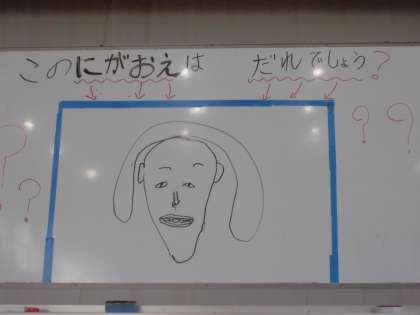 このにがおえは だれでしょう?
? ? ? ?